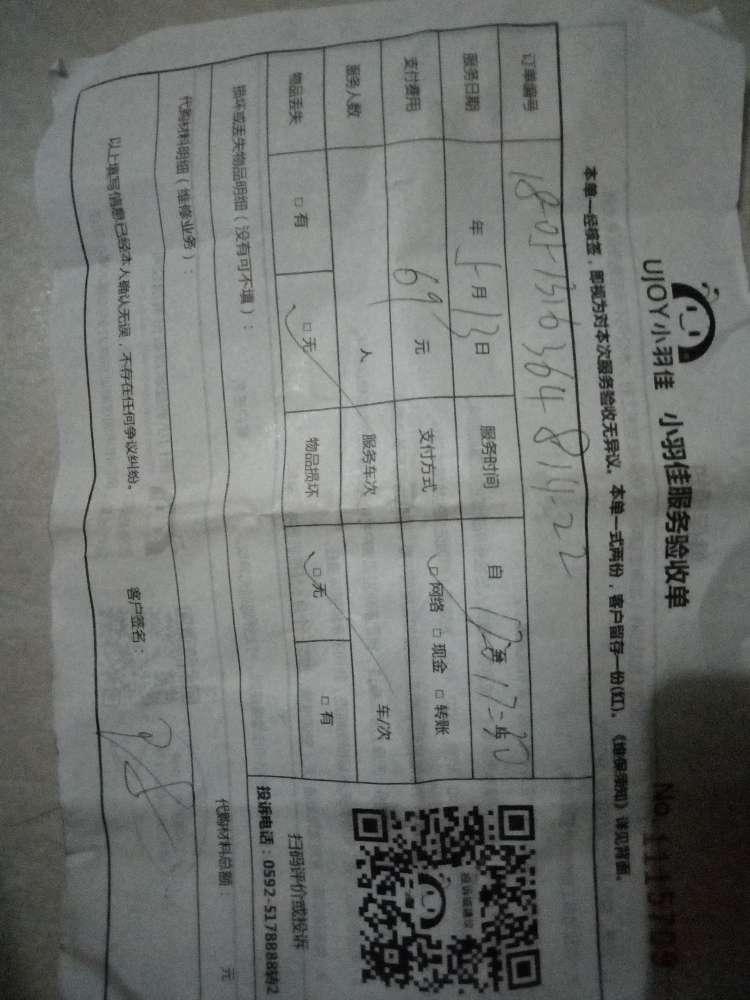 UJOY小羽佳 小羽佳服务验收单
No. 1115709
本单一经核签，即视为对本次服务验收无异议。本单一式两份，客户留存一份(红)。《维保须知》详见背面。
订单编号
服务日期 年 5月13日 服务时间 自 至 止
支付费用 69元 支付方式 □网络 □现金 □转账
服务人数 人 服务车次 车/次
物品丢失 □有 □无 物品损坏 □无 □有
损坏或丢失物品明细（没有可不填）：
代购材料明细（维修业务）： 代购材料总额： 元
以上填写信息已经本人确认无误，不存在任何争议纠纷。 客户签名：
投诉或建议
扫码评价或投诉
投诉电话：0592-5178888转2